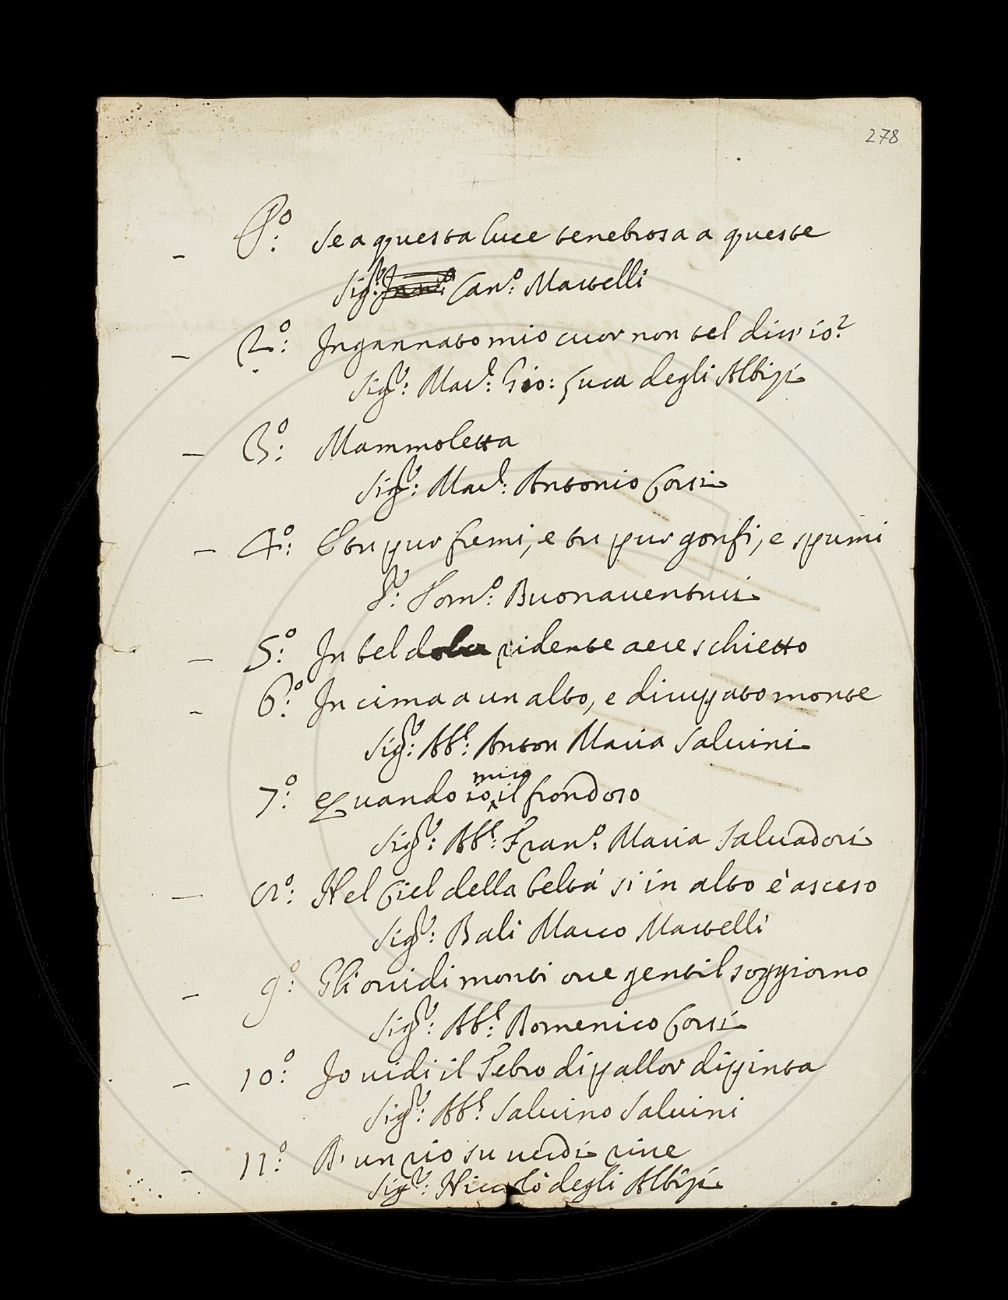 278
P.º: Se a questa luce tenebrosa a queste
Sig.r: Can.º: Martelli
2.º: Ingannato mio cuor non tel diss'io?
Sig.r: Mar.e: Gio: Luca degli Albizi
3.º: Mammoletta
Sig.r: Mar.e: Antonio Corsi
4.º: E tu pur fremi, e tu pur gonfi, e spumi
S.r: Tom.º: Buonaventuri
5.º: In bel ridente aere schietto
6.º: In cima a un alto, e dirupato monte
Sig.r: Ab.e: Anton Maria Salvini
7.º: Quando io miro il frondoso
Sig.r: Ab.e: Fran.º: Maria Salvadori
8.º: Nel Ciel della beltà si in alto è asceso
Sig.r: Bali Marco Martelli
9.º: Gli ovidi monti ove gentil soggiorno
Sig.r: Ab.e: Domenico Corsi
10.º: Io vidi il Febro di pallor dipinta
Sig.r: Ab.e: Salvino Salvini
11.º: D'un rio su verdi rive
Sig.r: Niccolò degli Albizi